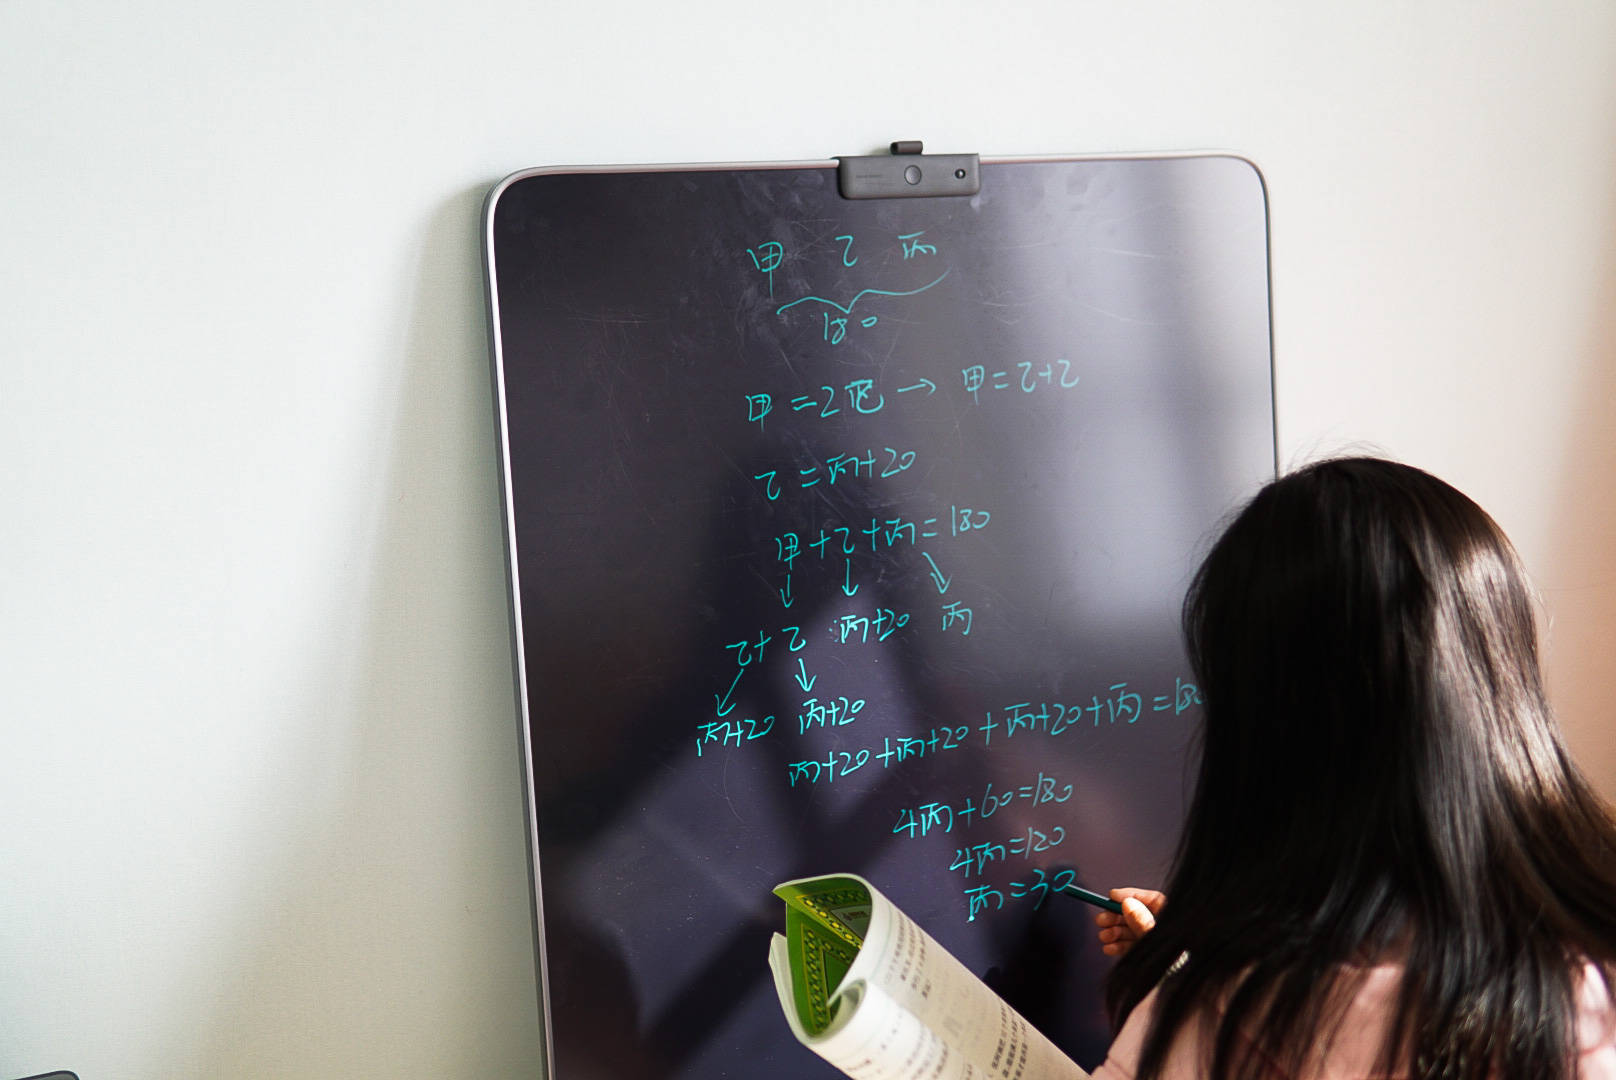 甲 乙 丙
180
甲=2乙→甲=乙+乙
乙=丙+20
甲+乙+丙=180
↓ ↓ ↘
乙+乙 丙+20 丙
↙ ↓
丙+20 丙+20
丙+20+丙+20+丙+20+丙=180
4丙+60=180
4丙=120
丙=30